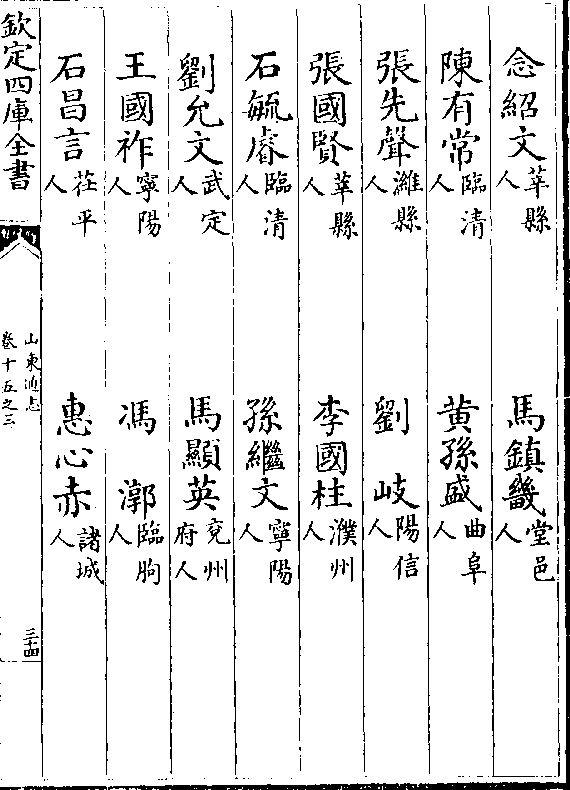 念紹文莘縣人　馬鎮畿堂邑人
陳有常臨清人　黄孫盛曲阜人
張先聲濰縣人　劉岐陽信人
張國賢莘縣人　李國柱濮州人
石毓睿臨清人　孫繼文寧陽人
劉允文武定人　馬顯英兗州府人
王國祚寧陽人　馮漷臨朐人
石昌言茌平人　惠心赤諸城人
欽定四庫全書
山東通志
卷十五之三
三十四